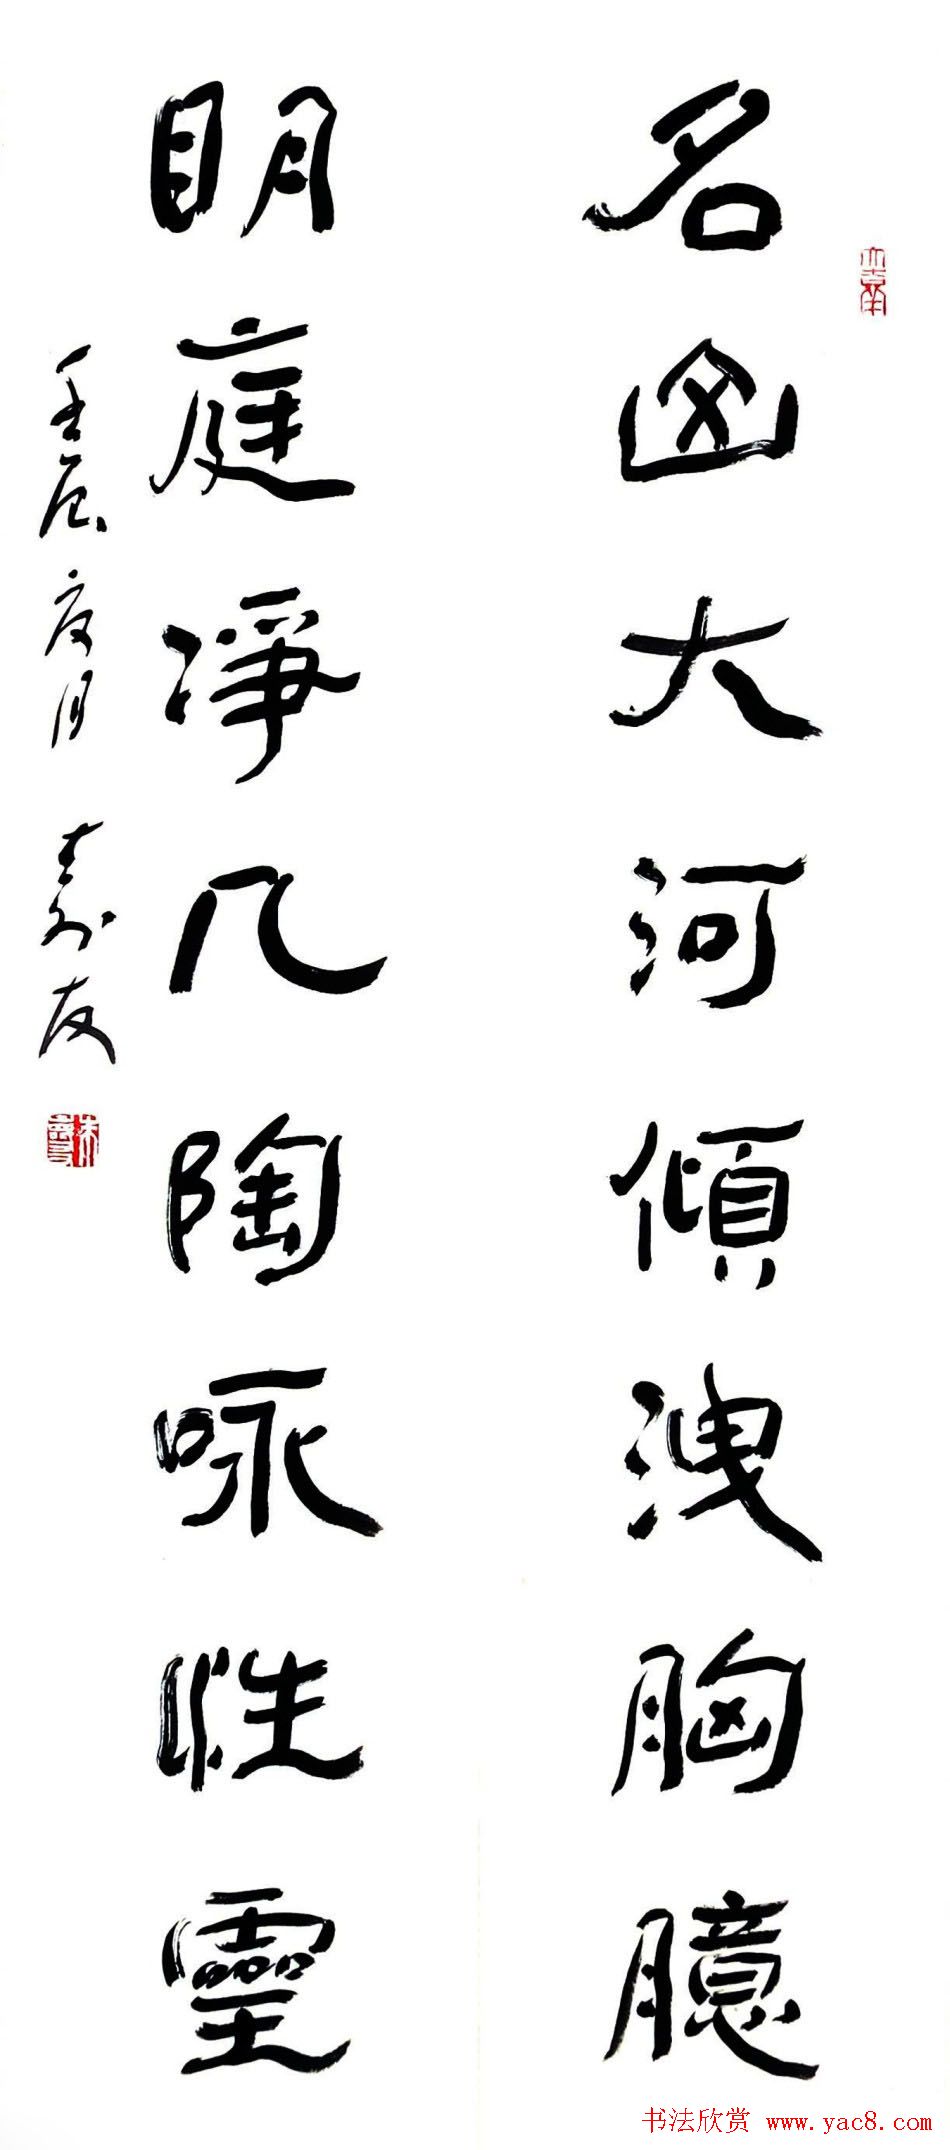 名大河傾洩胸臆
明庭凈几陶咏性靈
壬辰夏月 寿友
书法欣赏 www.yac8.com